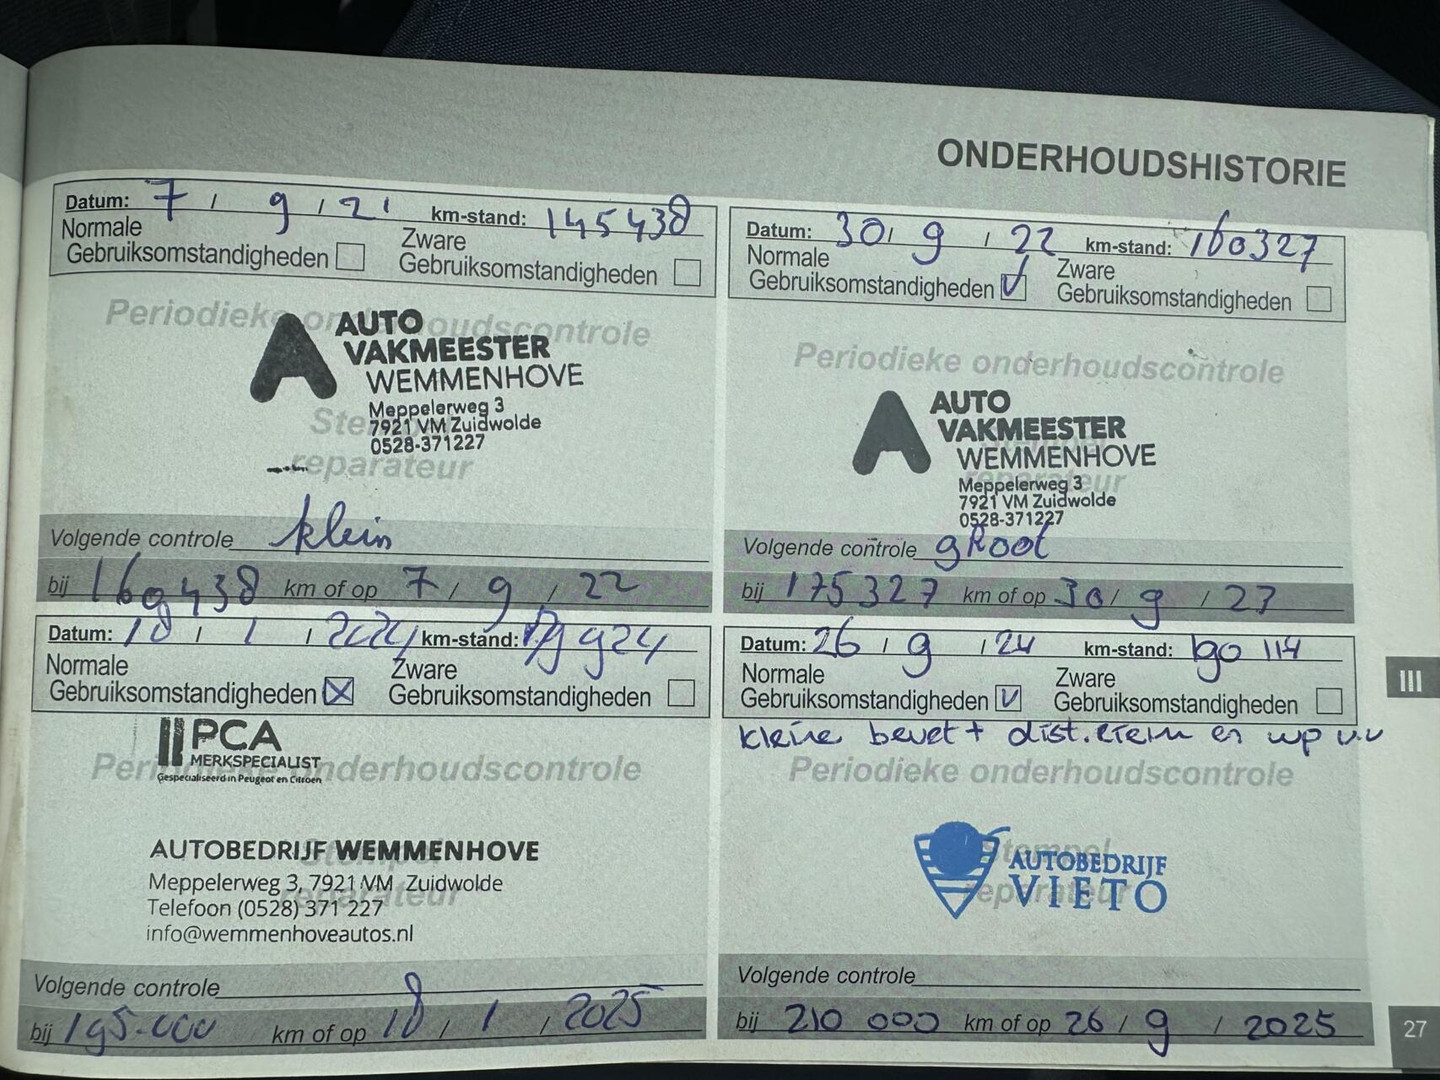 ONDERHOUDSHISTORIE
Datum: 7 / 9 / 21 km-stand: 145438
Normale Gebruiksomstandigheden
Zware Gebruiksomstandigheden
Periodieke onderhoudscontrole
AUTO
VAKMEESTER
WEMMENHOVE
Meppelerweg 3
7921 VM Zuidwolde
0528-371227
reparateur
Volgende controle klein
bij 160438 km of op 7 / 9 / 22
Datum: 30 / 9 / 22 km-stand: 160327
Normale Gebruiksomstandigheden
Zware Gebruiksomstandigheden
Periodieke onderhoudscontrole
AUTO
VAKMEESTER
WEMMENHOVE
Meppelerweg 3
7921 VM Zuidwolde
0528-371227
Volgende controle groot
bij 175327 km of op 30 / 9 / 23
Datum: 18 / 1 / 2024 km-stand:
Normale Gebruiksomstandigheden
Zware Gebruiksomstandigheden
PCA
MERKSPECIALIST
Gespecialiseerd in Peugeot en Citroen
Periodieke onderhoudscontrole
Stempel
reparateur
AUTOBEDRIJF WEMMENHOVE
Meppelerweg 3, 7921 VM Zuidwolde
Telefoon (0528) 371 227
info@wemmenhoveautos.nl
Volgende controle
bij 195.000 km of op 18 / 1 / 2025
Datum: 26 / 9 / 24 km-stand: 190 114
Normale Gebruiksomstandigheden
Zware Gebruiksomstandigheden
kleine beurt + dist.riem en wp v.v
Periodieke onderhoudscontrole
Stempel
reparateur
AUTOBEDRIJF
VIETO
Volgende controle
bij 210 000 km of op 26 / 9 / 2025
III
27